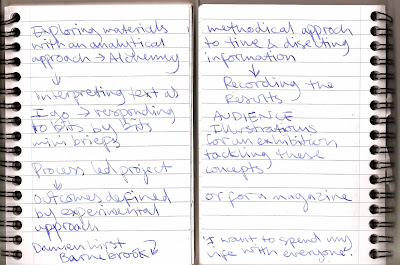 Exploring materials
with an analytical
approach → Alchemy
↓
Interpreting text as
I go → responding
to bits by bits
mini briefs
Process led project
↓
outcomes defined
by experimental
approach
Damien Hirst
Barnebrook
methodical approch
to time & disecting
information
↓
Recording the
Results
AUDIENCE
Illustrations
for an exhibition
tackling these
concepts
or for a magazine
'I want to spend my
life with everyone'.